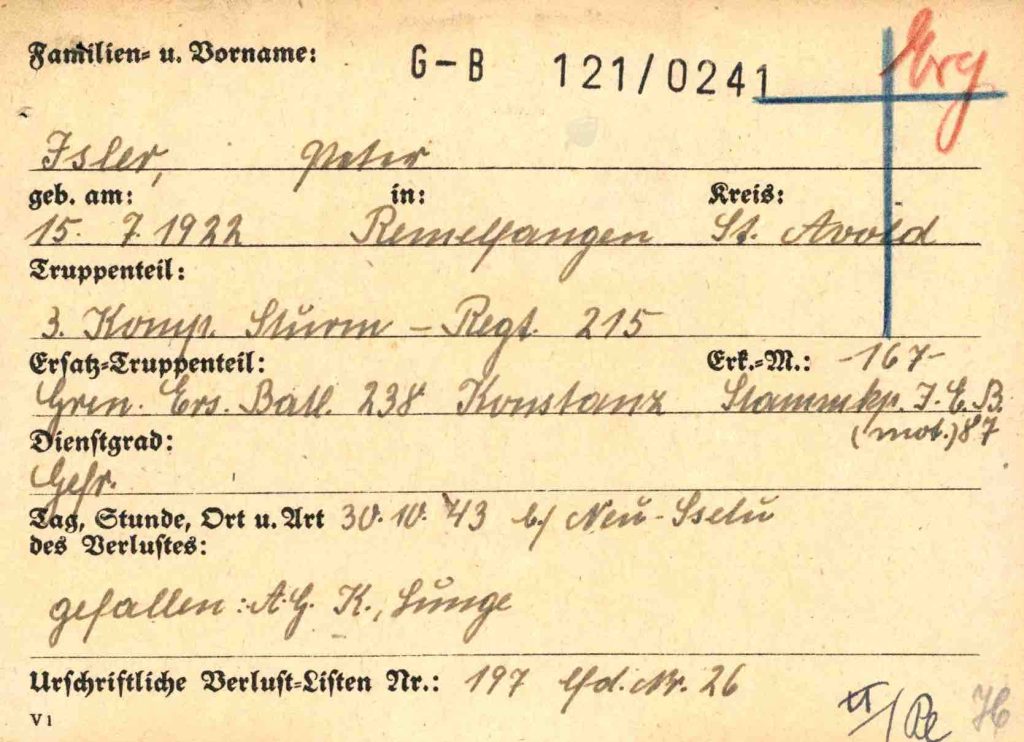 Familien- u. Vorname: G-B 121/0241 Erg
Isler, Peter
geb. am: in: Kreis:
15. 7. 1922 Remelfangen St. Avold
Truppenteil:
3. Komp. Sturm - Regt. 215
Ersatz-Truppenteil: Erk.-M.: -167-
Gren. Ers. Batl. 238 Konstanz Stammkp. I.E.B.
(mot.) 87
Dienstgrad:
Gefr.
Tag, Stunde, Ort u. Art 30. 10. 43 b/ Neu-
des Verlustes:
gefallen: A.G. K., Lunge
Urschriftliche Verlust-Listen Nr.: 197 lfd. Nr. 26
V 1